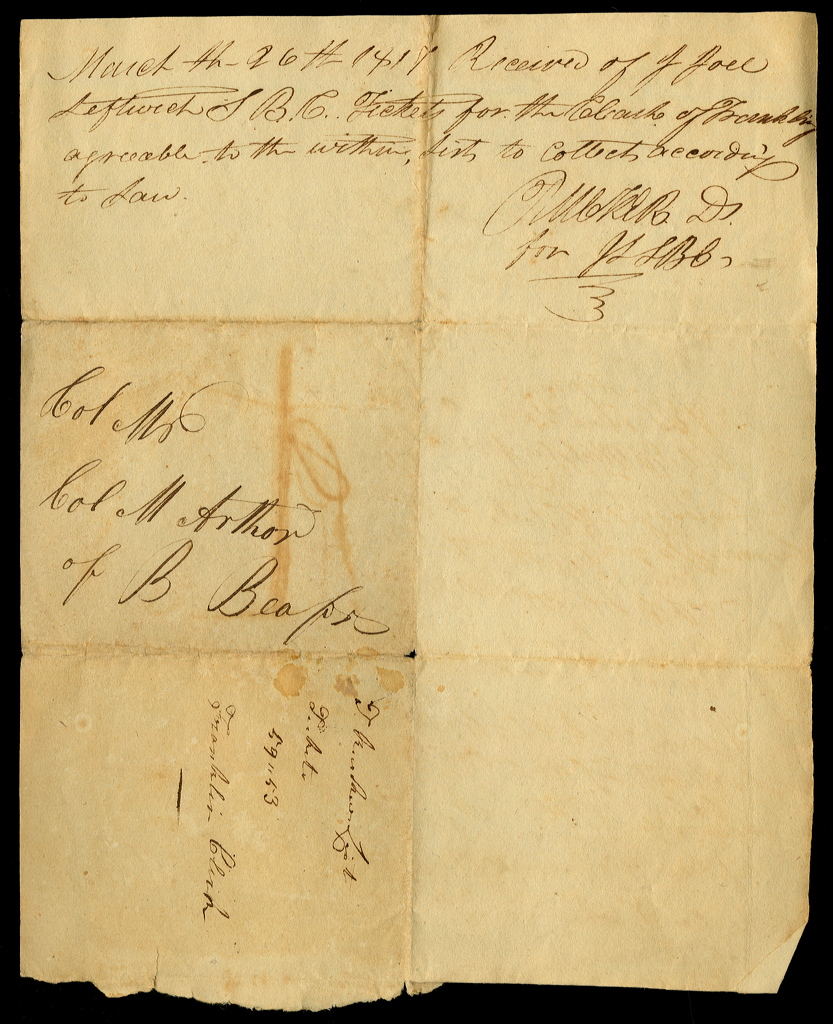 March th 26th 1817 Received of J Joel
Leftwich S B. C. Tickets for the Clark of Franklin
agreeable to the within, list to Collect according
to Law.
Ds.
for
Col Mr
Col M Arthor
of B Beafor
Tickets
59"53
Franklin Clerk